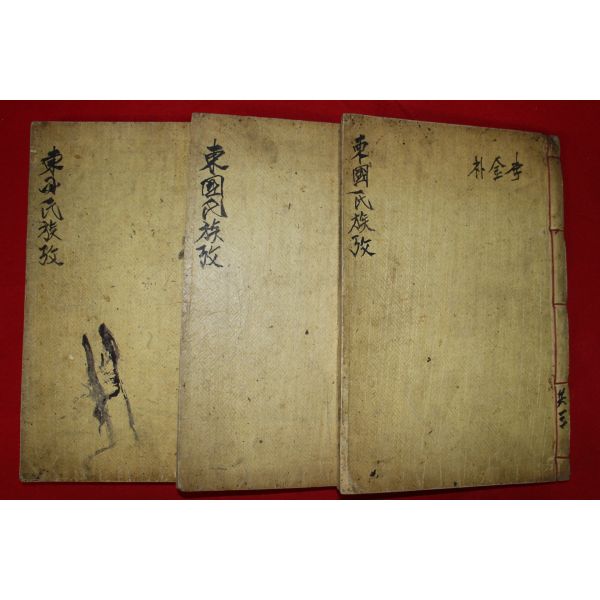 東國氏族攷
李金朴
共三
東國氏族攷
東国氏族攷